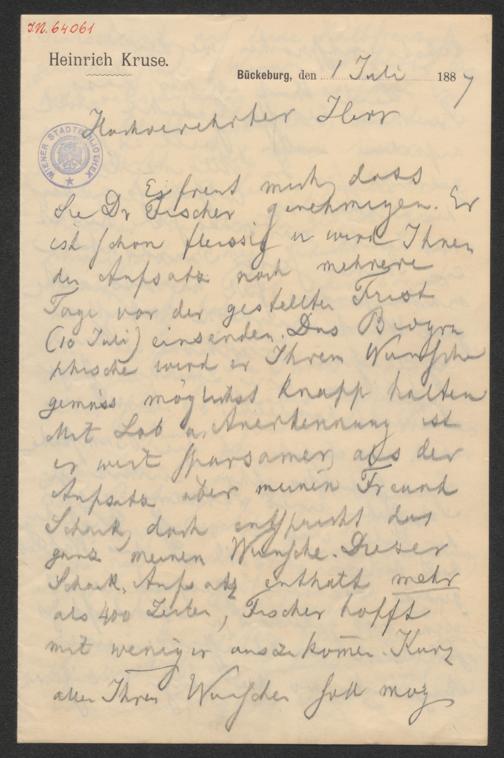 I.N. 64061
Heinrich Kruse.
Bückeburg, den 1 Juli 1887
WIENER STADTBIBLIOTHEK
Hochverehrter Herr
Es freut mich, dass
Sie Dr Fischer genehmigen. Er
ist schon fleissig u wird Ihnen
den Aufsatz noch mehrere
Tage vor der gestellten Frist
(10 Juli) einsenden. Das Biogra
phische wird er Ihrem Wunsche
gemäss möglichst knapp halten
Mit Lob u. Anerkennung ist
er weit sparsamer, als der
Aufsatz über meinen Freund
Schack, doch entspricht das
ganz meinem Wunsche. Dieser
Schack-Aufsatz enthält mehr
als 400 Zeilen, Fischer hofft
mit weniger auszukom̄en. Kurz
allen Ihren Wünschen soll mög